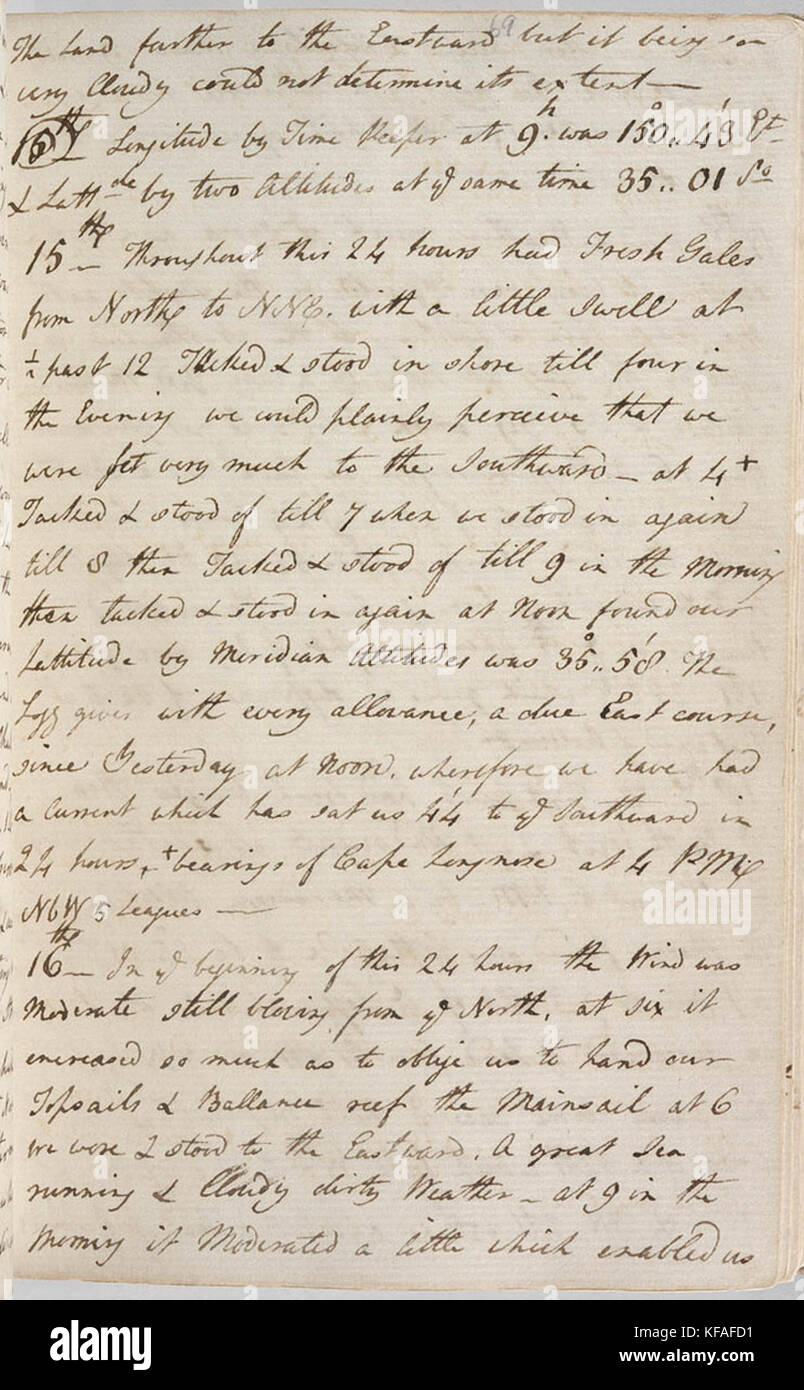 69
The Land further to the Eastward but it being so
very Cloudy could not determine its extent —
15th Longitude by Time Keeper at 9h. was 150°..43' Et
& Lattde by two Altitudes at ye same time 35..01 So
15th Throughout this 24 hours had Fresh Gales
from North to NNE. with a little Swell at
½ past 12 Tacked & stood in shore till four in
the Evening we could plainly perceive that we
were set very much to the Southward — at 4+
Tacked & stood of till 7 when we stood in again
till 8 then Tacked & stood of till 9 in the Morning
then tacked & stood in again at Noon found our
Lattitude by Meridian Altitudes was 35°..58' The
Logg gives with every allowance, a due East course,
since Yesterday at Noon, wherefore we have had
a Current which has sat us 44' to ye Southward in
24 hours, + bearings of Cape Longnose at 4 PM
NbW 5 Leagues —
16th — In ye beginning of this 24 hours the Wind was
Moderate still blowing from ye North, at six it
encreased so much as to oblige us to hand our
Topsails & Ballance reef the Mainsail at 6
we wore & stood to the Eastward. A great Sea
running & Cloudy dirty Weather — at 9 in the
Morning it Moderated a little which enabled us
alamy
alamy
Image ID: KFAFD1
www.alamy.com